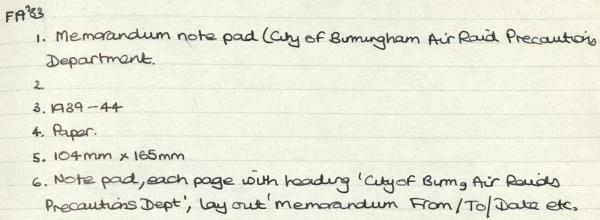 FA'83
1. Memorandum note pad (City of Birmingham Air Raid Precautions
Department.
2.
3. 1939-44
4. Paper.
5. 104mm x 165mm
6. Note pad, each page with heading 'City of Birm, Air Raids
Precautions Dept', lay out 'Memorandum From/To/Date etc.